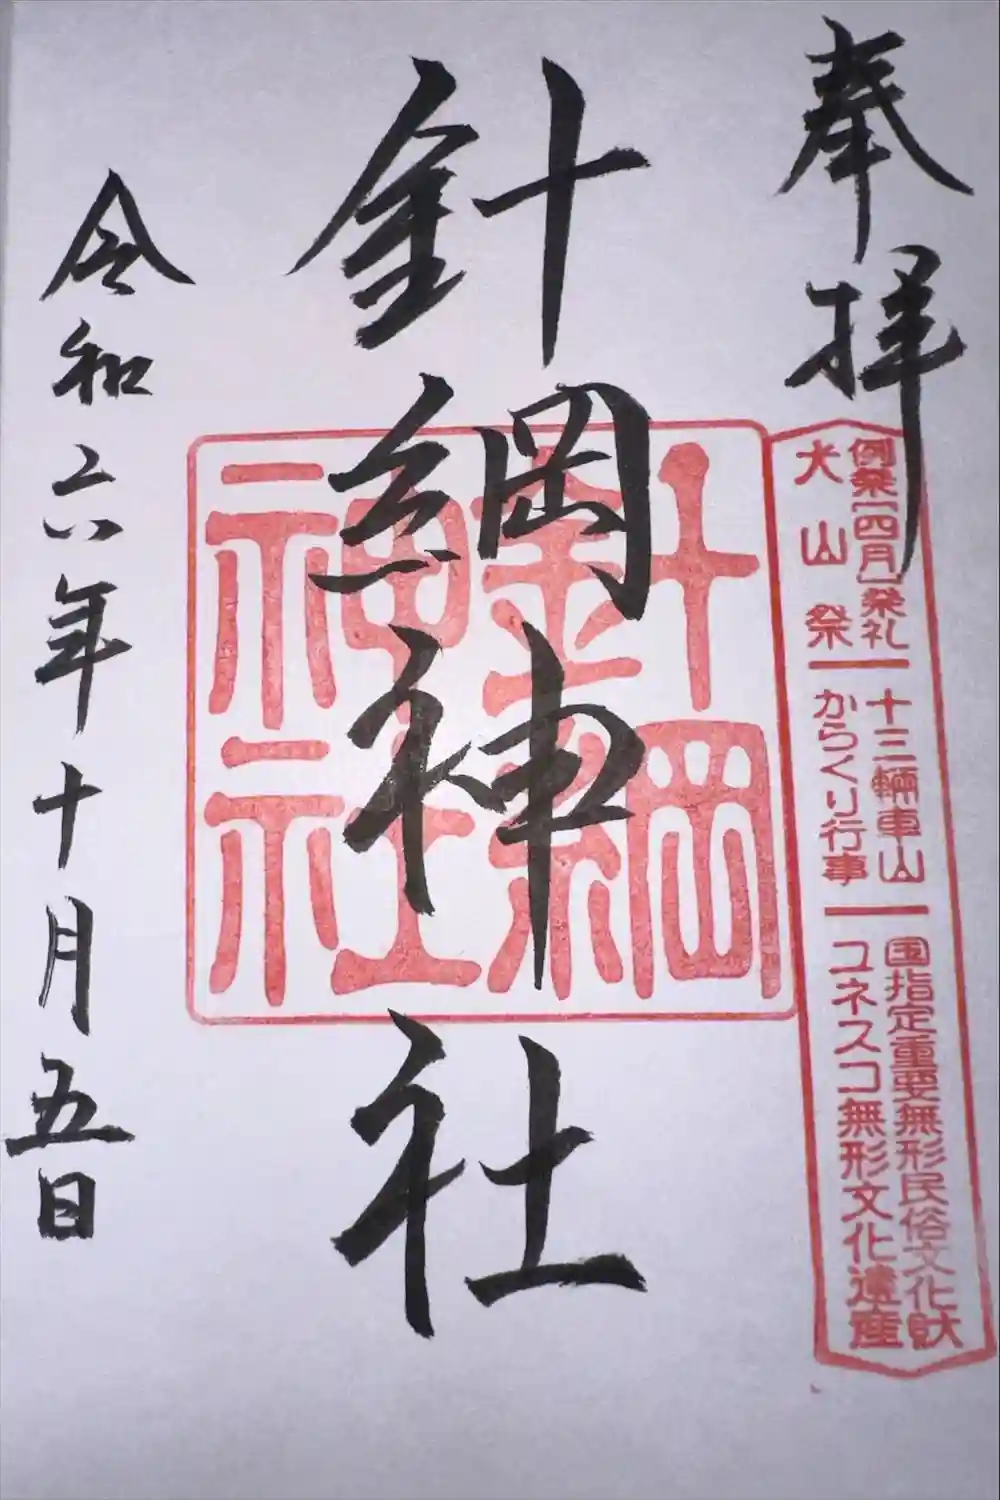 奉拝
例祭［四月］祭礼
犬山祭
十三輌車山
からくり行事
国指定重要無形民俗文化財
ユネスコ無形文化遺産
針綱神社
針綱
神社
令和六年十月五日